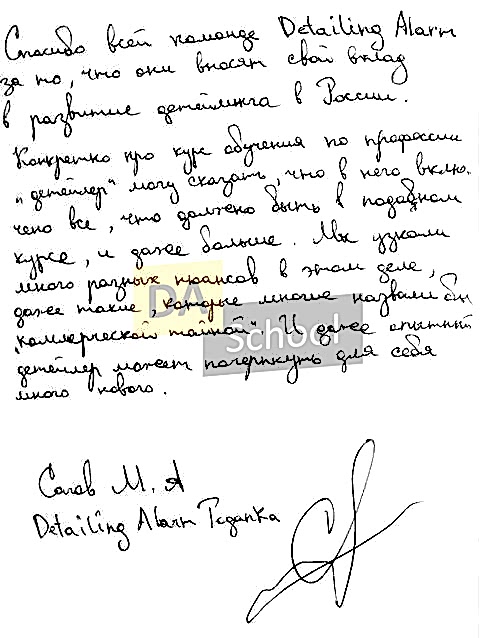 Спасибо всей команде Detailing Alarm
за то, что они вносят свой вклад
в развитие детейлинга в России.
Конкретно про курс обучения по профессии
"детейлер" могу сказать, что в него вклю-
чено все, что должно быть в подобном
курсе, и даже больше. Мы узнали
много разных нюансов в этом деле,
даже такие, которые многие назвали бы
"коммерческой тайной". И даже опытный
детейлер может почерпнуть для себя
много нового.
DA
School
М. А
Detailing Alarm